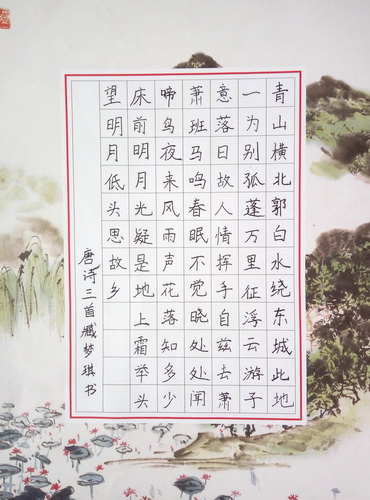 青山横北郭白水绕东城此地
一为别孤蓬万里征浮云游子
意落日故人情挥手自兹去萧
萧班马鸣春眠不觉晓处处闻
啼鸟夜来风雨声花落知多少
床前明月光疑是地上霜举头
望明月低头思故乡
唐诗三首臧梦琪书